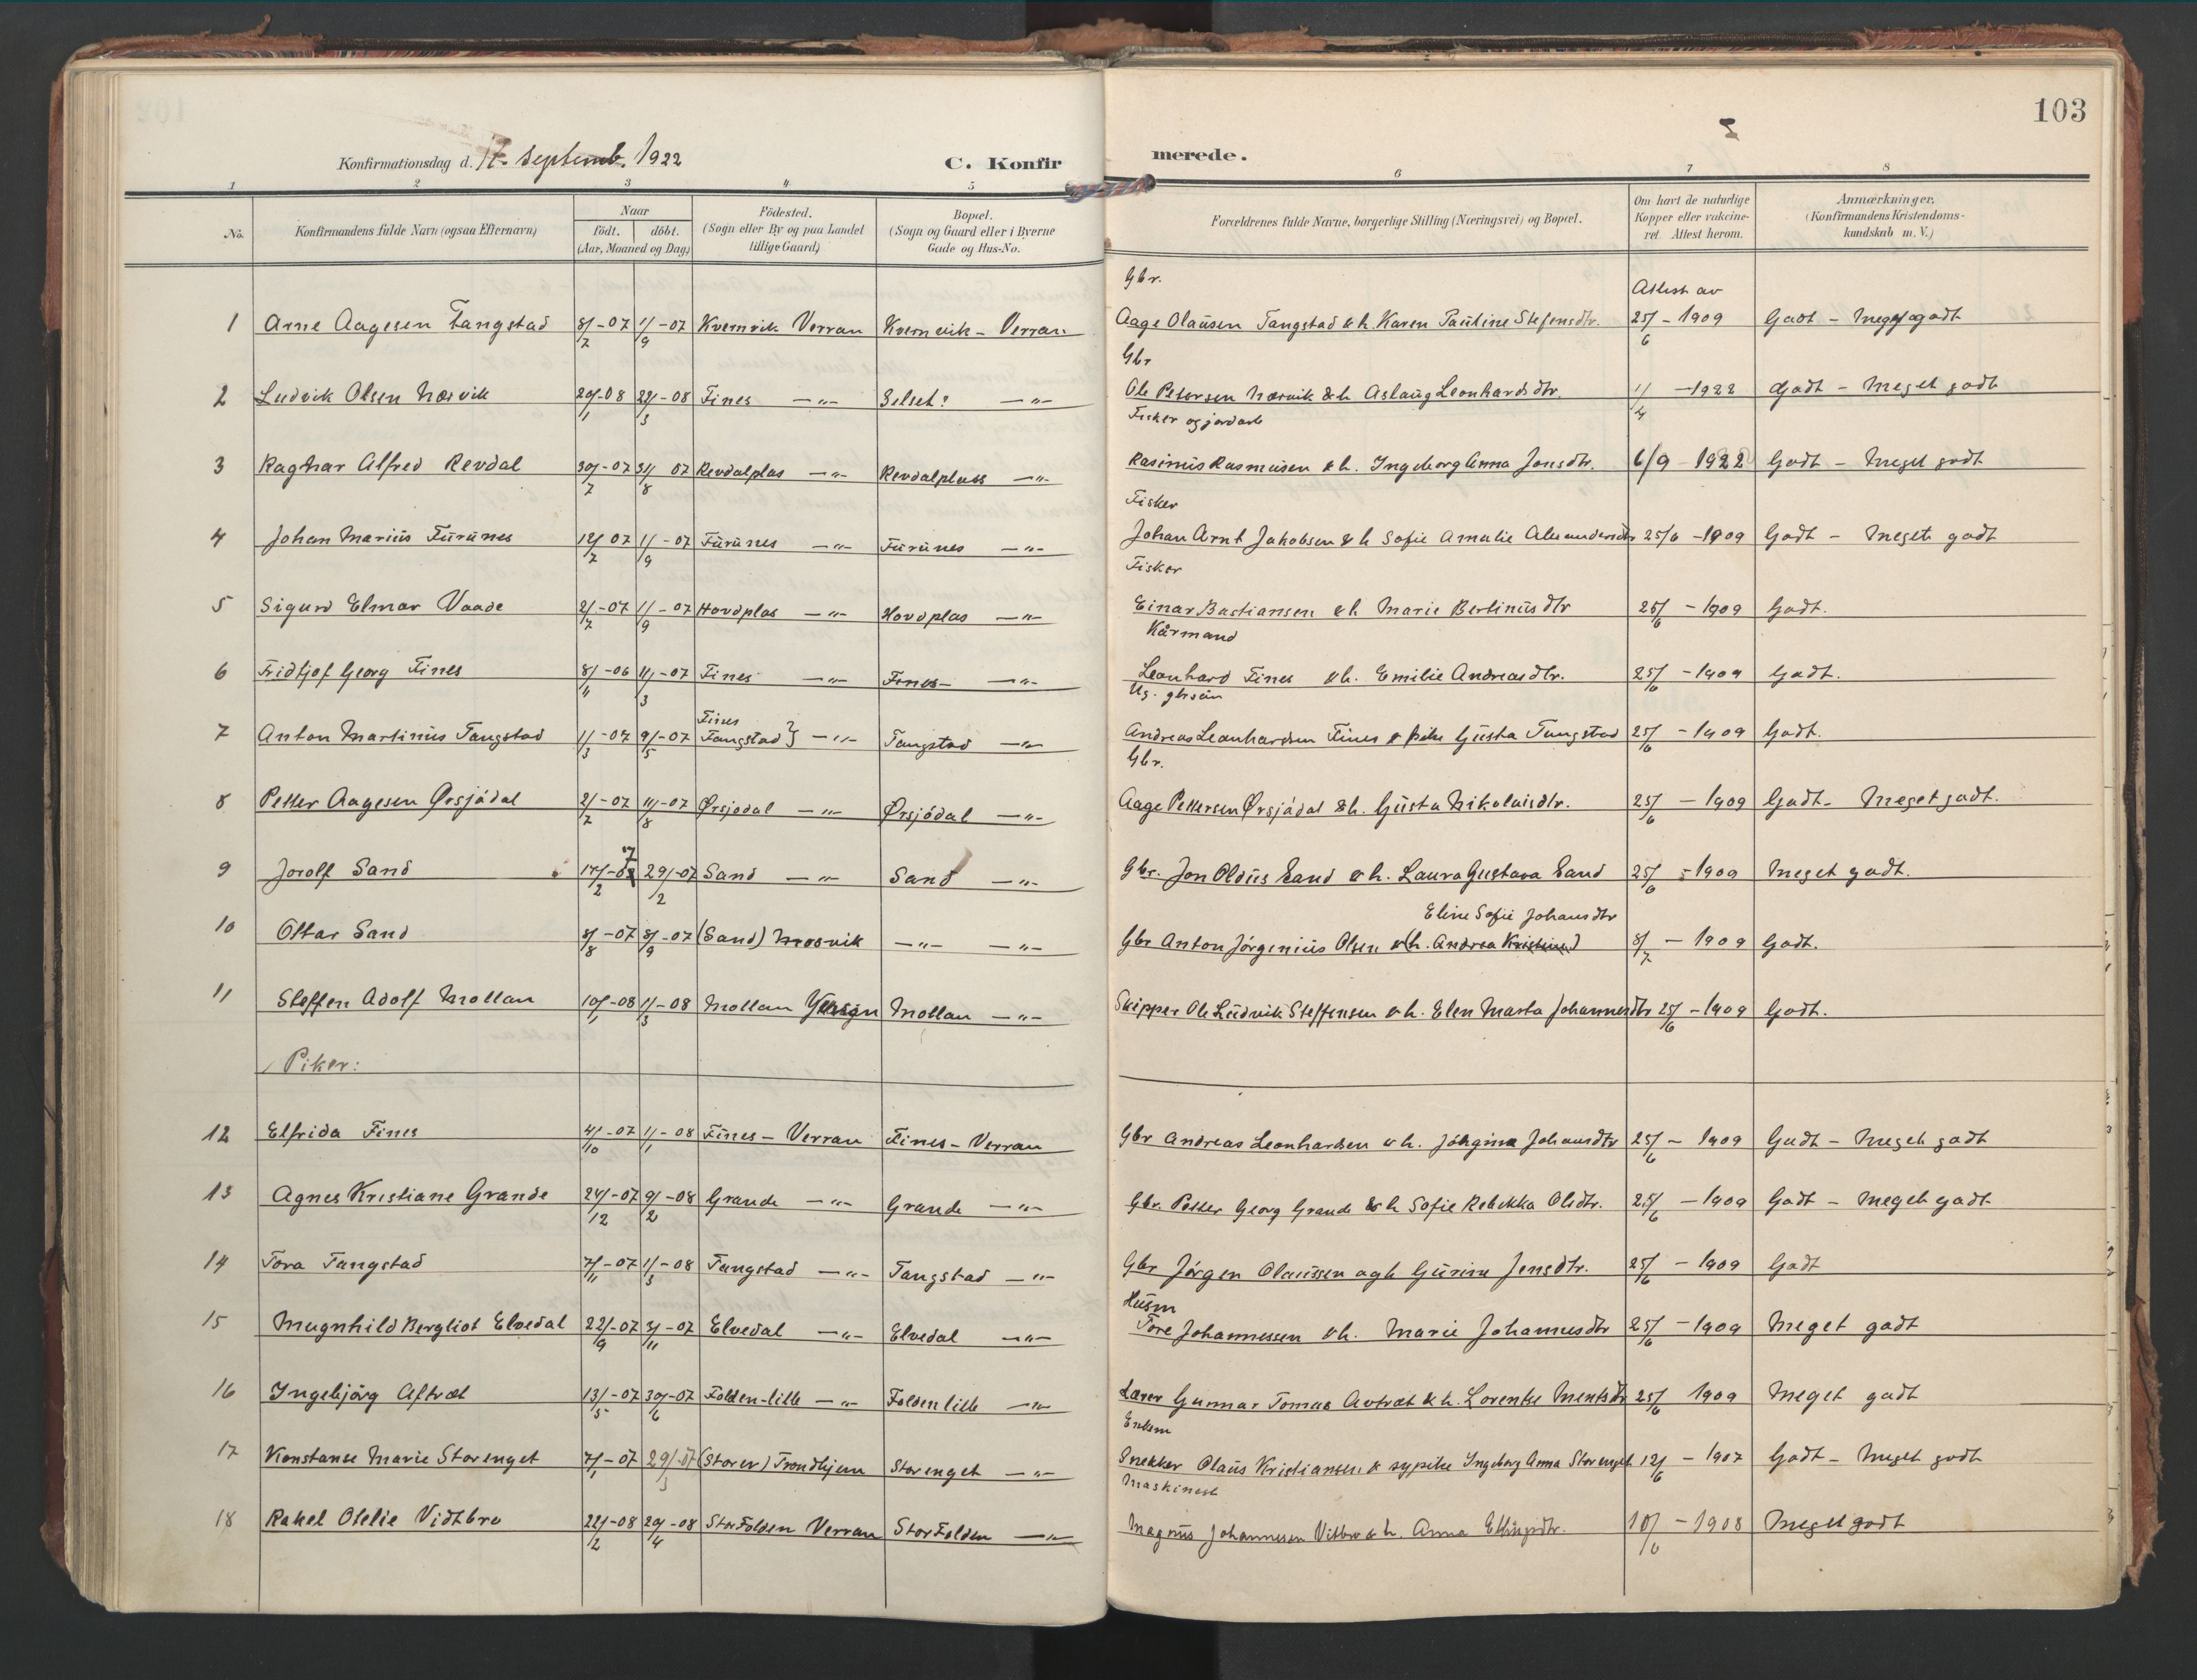 103
Konfirmationsdag d. 17. Septemb. 1922
C. Konfirmerede.
1 2 3 4 5 6 7 8
No. Konfirmandens fulde Navn (ogsaa Efternavn) Naar födt. döbt. (Aar, Maaned og Dag) Födested. (Sogn eller By og paa Landet tillige Gaard) Bopæl. (Sogn og Gaard eller i Byerne Gade og Hus-No. Forældrenes fulde Navne, borgerlige Stilling (Næringsvei) og Bopæl. Om havt de naturlige Kopper eller vakcineret. Attest herom. Anmærkninger. (Konfirmandens Kristendomskundskab m. V.)
Gbr. Attest av
1 Arne Aagesen Tangstad 8/7-07 1/9-07 Kvernvik Verran Kvernvik - Verran Aage Olausen Tangstad & h. Karen Pauline Stefensdtr. 25/6-1909 Godt - Meget godt
Gbr
2 Ludvik Olsen Nærvik 20/1-08 22/3-08 Fines -"- Selset? -"- Ole Petersen Nærvik & h Aslaug Leonhardsdtr. 1/4-1922 Godt - Meget godt
Fisker og jordarb
3 Ragnar Alfred Revdal 30/7-07 31/8 07 Revdalplas -"- Revdalplass -"- Rasmus Rasmusen & h. Ingeborg Anna Jonsdtr. 6/9-1922 Godt - Meget godt
Fisker
4 Johan Marius Furunes 12/7 07 1/9-07 Furunes -"- Furunes -"- Johan Arnt Jakobsen & h Sofie Amalie Alexandersdtr 25/6-1909 Godt - Meget godt
Fisker
5 Sigurd Elmar Vaade 2/7-07 1/9-07 Hovdplas -"- Hovdplas -"- Einar Bastiansen & h Marie Bertinusdtr 25/6-1909 Godt.
Kårmand
6 Fridtjof Georg Fines 8/11-06 11/3-07 Fines -"- Fines -"- Leonhard Fines & h. Emilie Andreasdtr. 25/6-1909 Godt.
Ug. gbrsön
7 Anton Martinus Tangstad 1/3-07 9/5-07 Fines Tangstad } -"- Tangstad -"- Andreas Leonhardsen Fines & pike Gusta Tangstad 25/6-1909 Godt.
Gbr.
8 Petter Aagesen Ørsjödal 2/7-07 11/8-07 Ørsjødal -"- Ørsjödal -"- Aage Pettersen Ørsjödal & h. Gusta Nikolaisdtr. 25/6-1909 Godt - Meget godt.
9 Jorolf Sand 17/2-07 29/2-07 Sand -"- Sand -"- Gbr. Jon Oldus Sand & h. Laura Gustava Sand 25/6-1909 Meget godt.
Eline Sofie Johansdtr
10 Ottar Sand 8/8-07 8/9-07 (Sand) Mosvik -"- -"- Gbr Anton Jörginius Olsen & (h. Andrea Kristine) 8/7-1909 Godt.
11 Steffen Adolf Mollan 10/1-08 1/3-08 Mollan Mollan -"- Skipper Ole Ludvik Steffensen & h. Elen Marta Johannesdtr 25/6-1909 Godt.
Piker:
12 Elfrida Fines 4/10-07 1/1-08 Fines - Verran Fines - Verran Gbr Andreas Leonhardsen & h. Jörgine Johansdtr 25/6-1909 Godt - Meget godt
13 Agnes Kristiane Grande 24/12-07 9/2-08 Grande -"- Grande -"- Gbr. Petter Georg Grande & h Sofie Rebekka Olsdtr. 25/6-1909 Godt - Meget godt
14 Tora Tangstad 7/11-07 1/3-08 Tangstad -"- Tangstad -"- Gbr Jörgen Olaussen og h Gurine Jensdtr. 25/6-1909 Godt
Husm
15 Magnhild Bergliot Elvedal 22/9-07 3/11-07 Elvedal -"- Elvedal -"- Tore Johannessen & h. Marie Johannesdtr 25/6-1909 Meget godt
16 Ingebjörg Aftret 13/5-07 30/6-07 Folden-lille -"- Folden lille -"- Lærer Gunnar Tomas Avtræt & h. Lorentse Mentsdtr 25/6 1909 Meget godt
Enkem
17 Konstanse Marie Storenget 7/1-07 29/3-07 (Storer) Trondhjem Storenget -"- Snekker Olaus Kristiansen & sypike Ingeborg Anna Storenget 12/6-1907 Godt - Meget godt
Maskinest
18 Rakel Otelie Vidtbro 22/2-08 20/4-08 Stor Folden Verran Stor Folden -"- Magnus Johannesen Vidbro & h. Anna Ellingsdtr. 10/6-1908 Meget godt